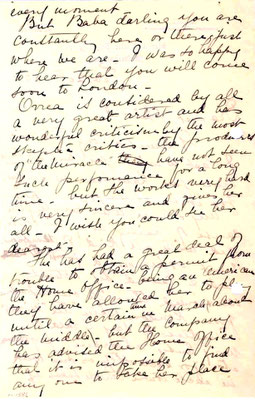 every moment
But Baba darling you are
constantly here or there, just
where we are - I was so happy
to hear that you will come
soon to London -
Orrea is considered by all
a very great artist and has
wonderful criticism by the most
skeptic critics - the producers
of "the Miracle" have not seen
such performance for a long
time - but she works very hard
is very sincere and gives her
all - I wish you could see her
dearest -
She has had a great deal of
trouble to obtain a permit from
the Home office - being an american
they have allowed her to play
until a certain March about
and
the middle - but the company
has advised the Home Office
that it is impossible to find
any one to take her place